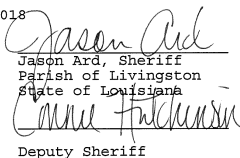 018
Jason Ard
Jason Ard, Sheriff
Parish of Livingston
State of Louisiana
Connie Hutchinson
Deputy Sheriff